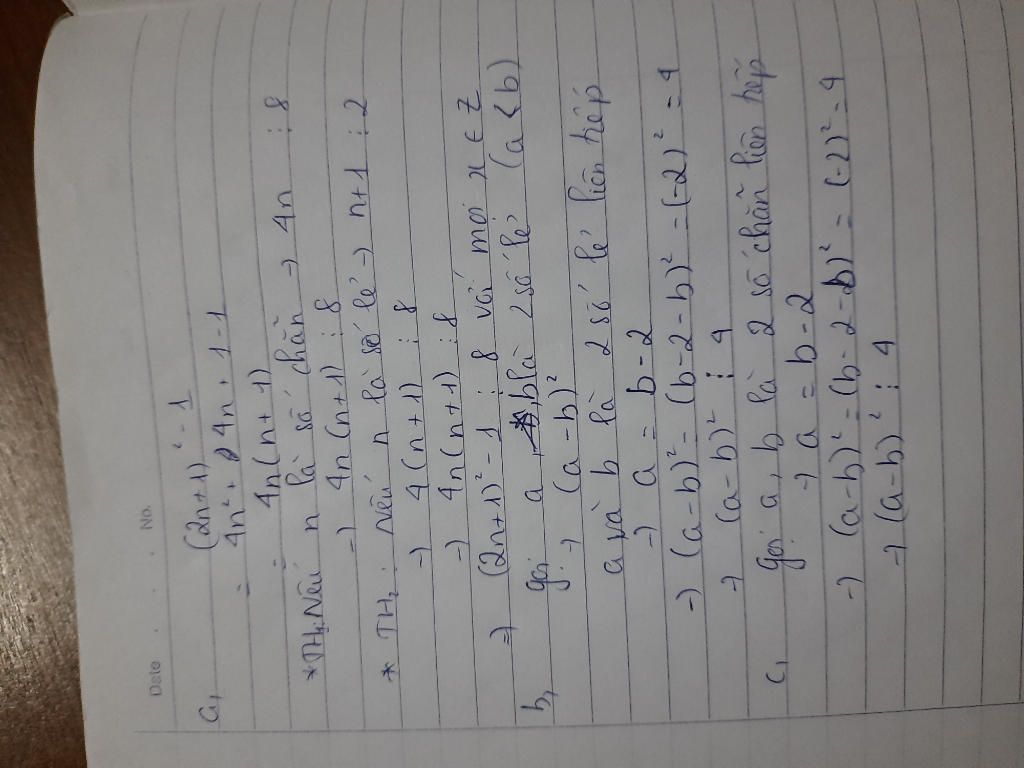 Date . . . No.
a, (2n+1)² - 1
= 4n² + 4n + 1 - 1
= 4n(n+1)
* TH₁: Nếu n là số chẵn → 4n ⋮ 8
→ 4n(n+1) ⋮ 8
* TH₂: Nếu n là số lẻ → n+1 ⋮ 2
→ 4(n+1) ⋮ 8
→ 4n(n+1) ⋮ 8
⇒ (2n+1)² - 1 ⋮ 8 với mọi n ∈ Z
b, gọi a, b là 2 số lẻ (a < b)
→ (a-b)²
a và b là 2 số lẻ liên tiếp
→ a = b - 2
→ (a-b)² = (b-2-b)² = (-2)² = 4
→ (a-b)² ⋮ 4
c, gọi a, b là 2 số chẵn liên tiếp
→ a = b - 2
→ (a-b)² = (b-2-b)² = (-2)² = 4
→ (a-b)² ⋮ 4